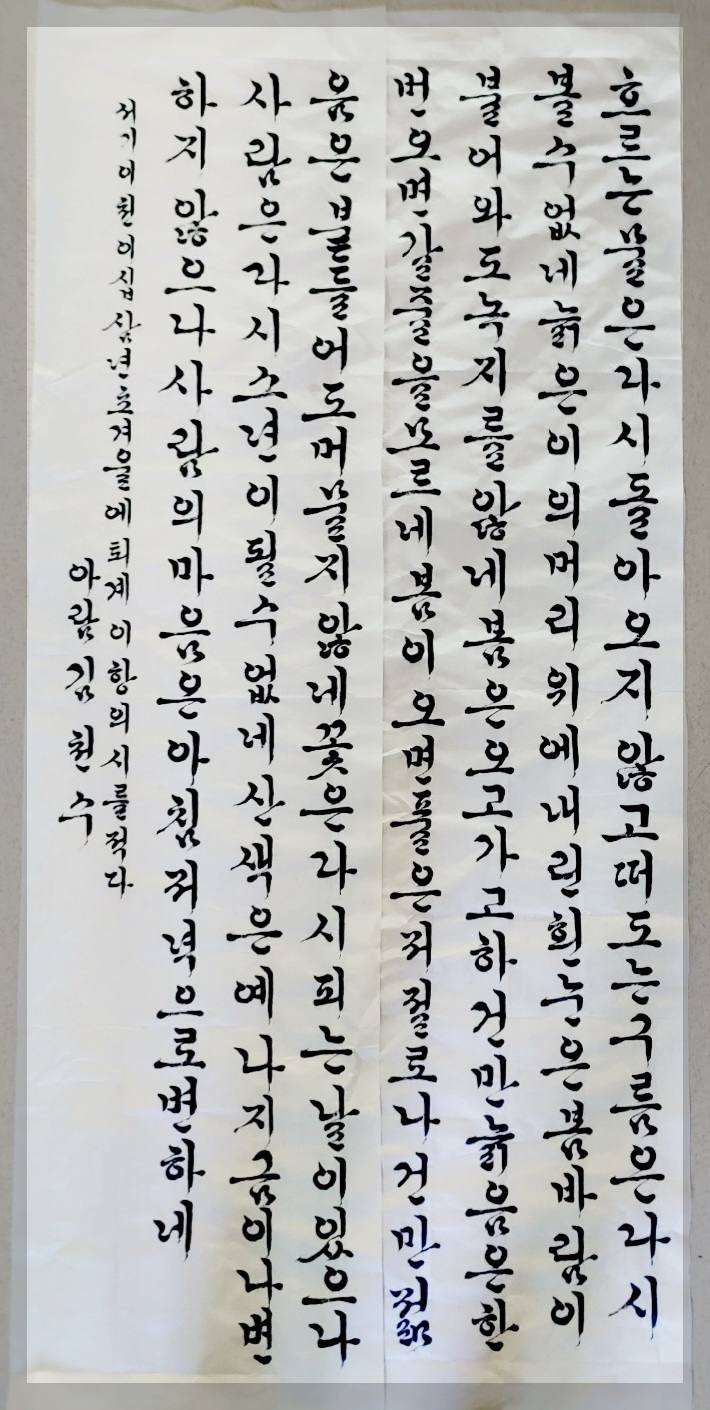 흐르는물은다시돌아오지않고떠도는구름은다시
볼수없네늙은이의머리위에내린흰눈은봄바람이
불어와도녹지를않네봄은오고가고하건만늙음은한
번오면갈줄을모르네봄이오면풀은저절로나건만젊
음은붙들어도머물지않네꽃은다시피는날이있으나
사람은다시소년이될수없네산색은예나지금이나변
하지않으나사람의마음은아침저녁으로변하네
서기이천이십삼년초겨울에퇴계이황의시를적다
아람김천수